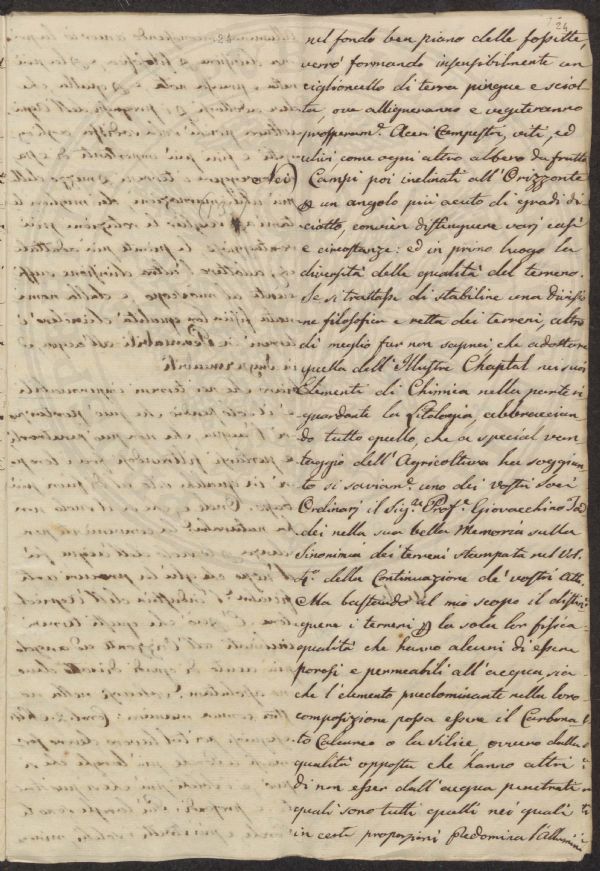 24
nel fondo ben piano delle fossette,
verrò formando insensibilmente un
ciglioncello di terra pingue e sciol-
ta, ove alligneranno e vegeteranno
prosperam.e Aceri Campestri, viti, ed
ulivi come ogni altro albero da frutto
Nei Campi poi inclinati all'Orizzonte
p un angolo più acuto di gradi di
ciotto, convien distinguere varj casi
e circostanze: ed in primo luogo la
diversità delle qualità del terreno.
Se si trattasse di stabilire una divisio
ne filosofica e retta dei terreni, altro
di meglio far non saprei che adottare
quella dell'Illustre Chaptal nei suoi
Elementi di Chimica nella parte ri
guardante la Litologia, abbraccian
do tutto quello, che a special van
taggio dell'Agricoltura ha soggiun
to sì saviam.e uno dei vostri Soci
Ordinarj il Sig.re Prof.e Giovacchino Tad
dei nella sua bella Memoria sulla
Sinonimia dei terreni stampata nel Vol.
4.o della Continuazione de' vostri Atti.
Ma bastando al mio scopo il distin
guere i terreni p la sola lor fisica
qualità che hanno alcuni di essere
porosi e permeabili all'acqua, sia
che l'elemento predominante nella loro
composizione possa essere il Carbona
to Calcareo o la Silice, ovvero dalla
qualità opposta che hanno altri
di non esser dall'acqua penetrati
quali sono tutti quelli nei quali
in certe proporzioni predomina l'Allumini